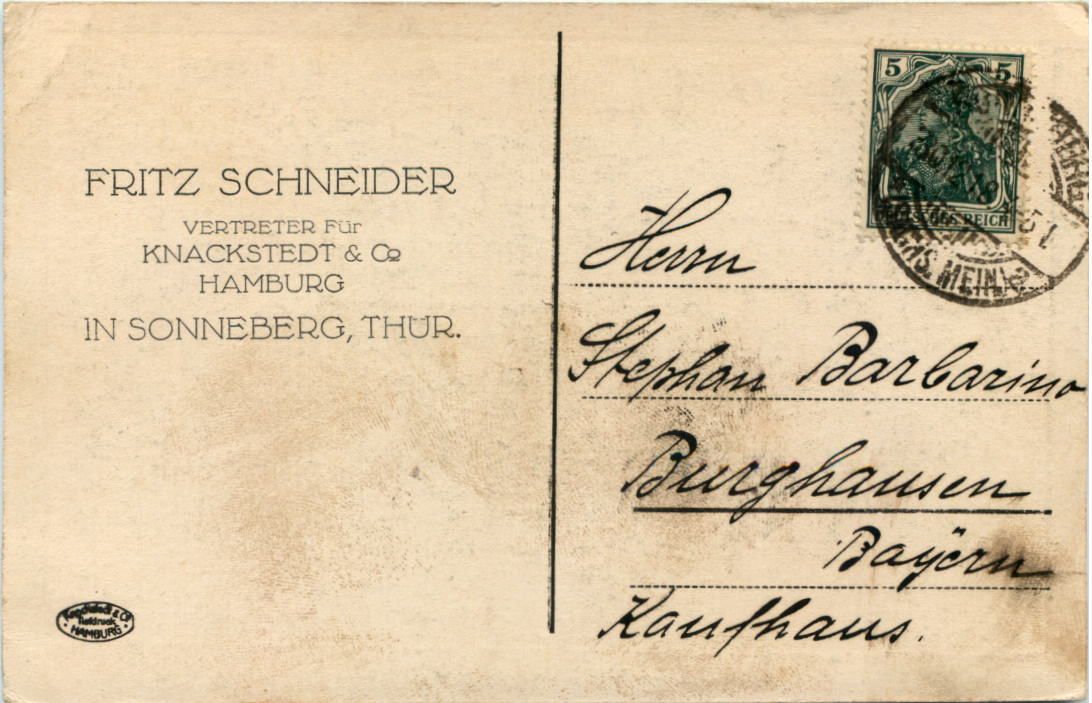 FRITZ SCHNEIDER
VERTRETER Für
KNACKSTEDT & Co
HAMBURG
IN SONNEBERG, THÜR.
Knackstedt & Co
Tiefdruck
HAMBURG
5 5
DEUTSCHES REICH
MEIN.) 2
Herrn
Stephan Barbarino
Burghausen
Bayern
Kaufhaus.